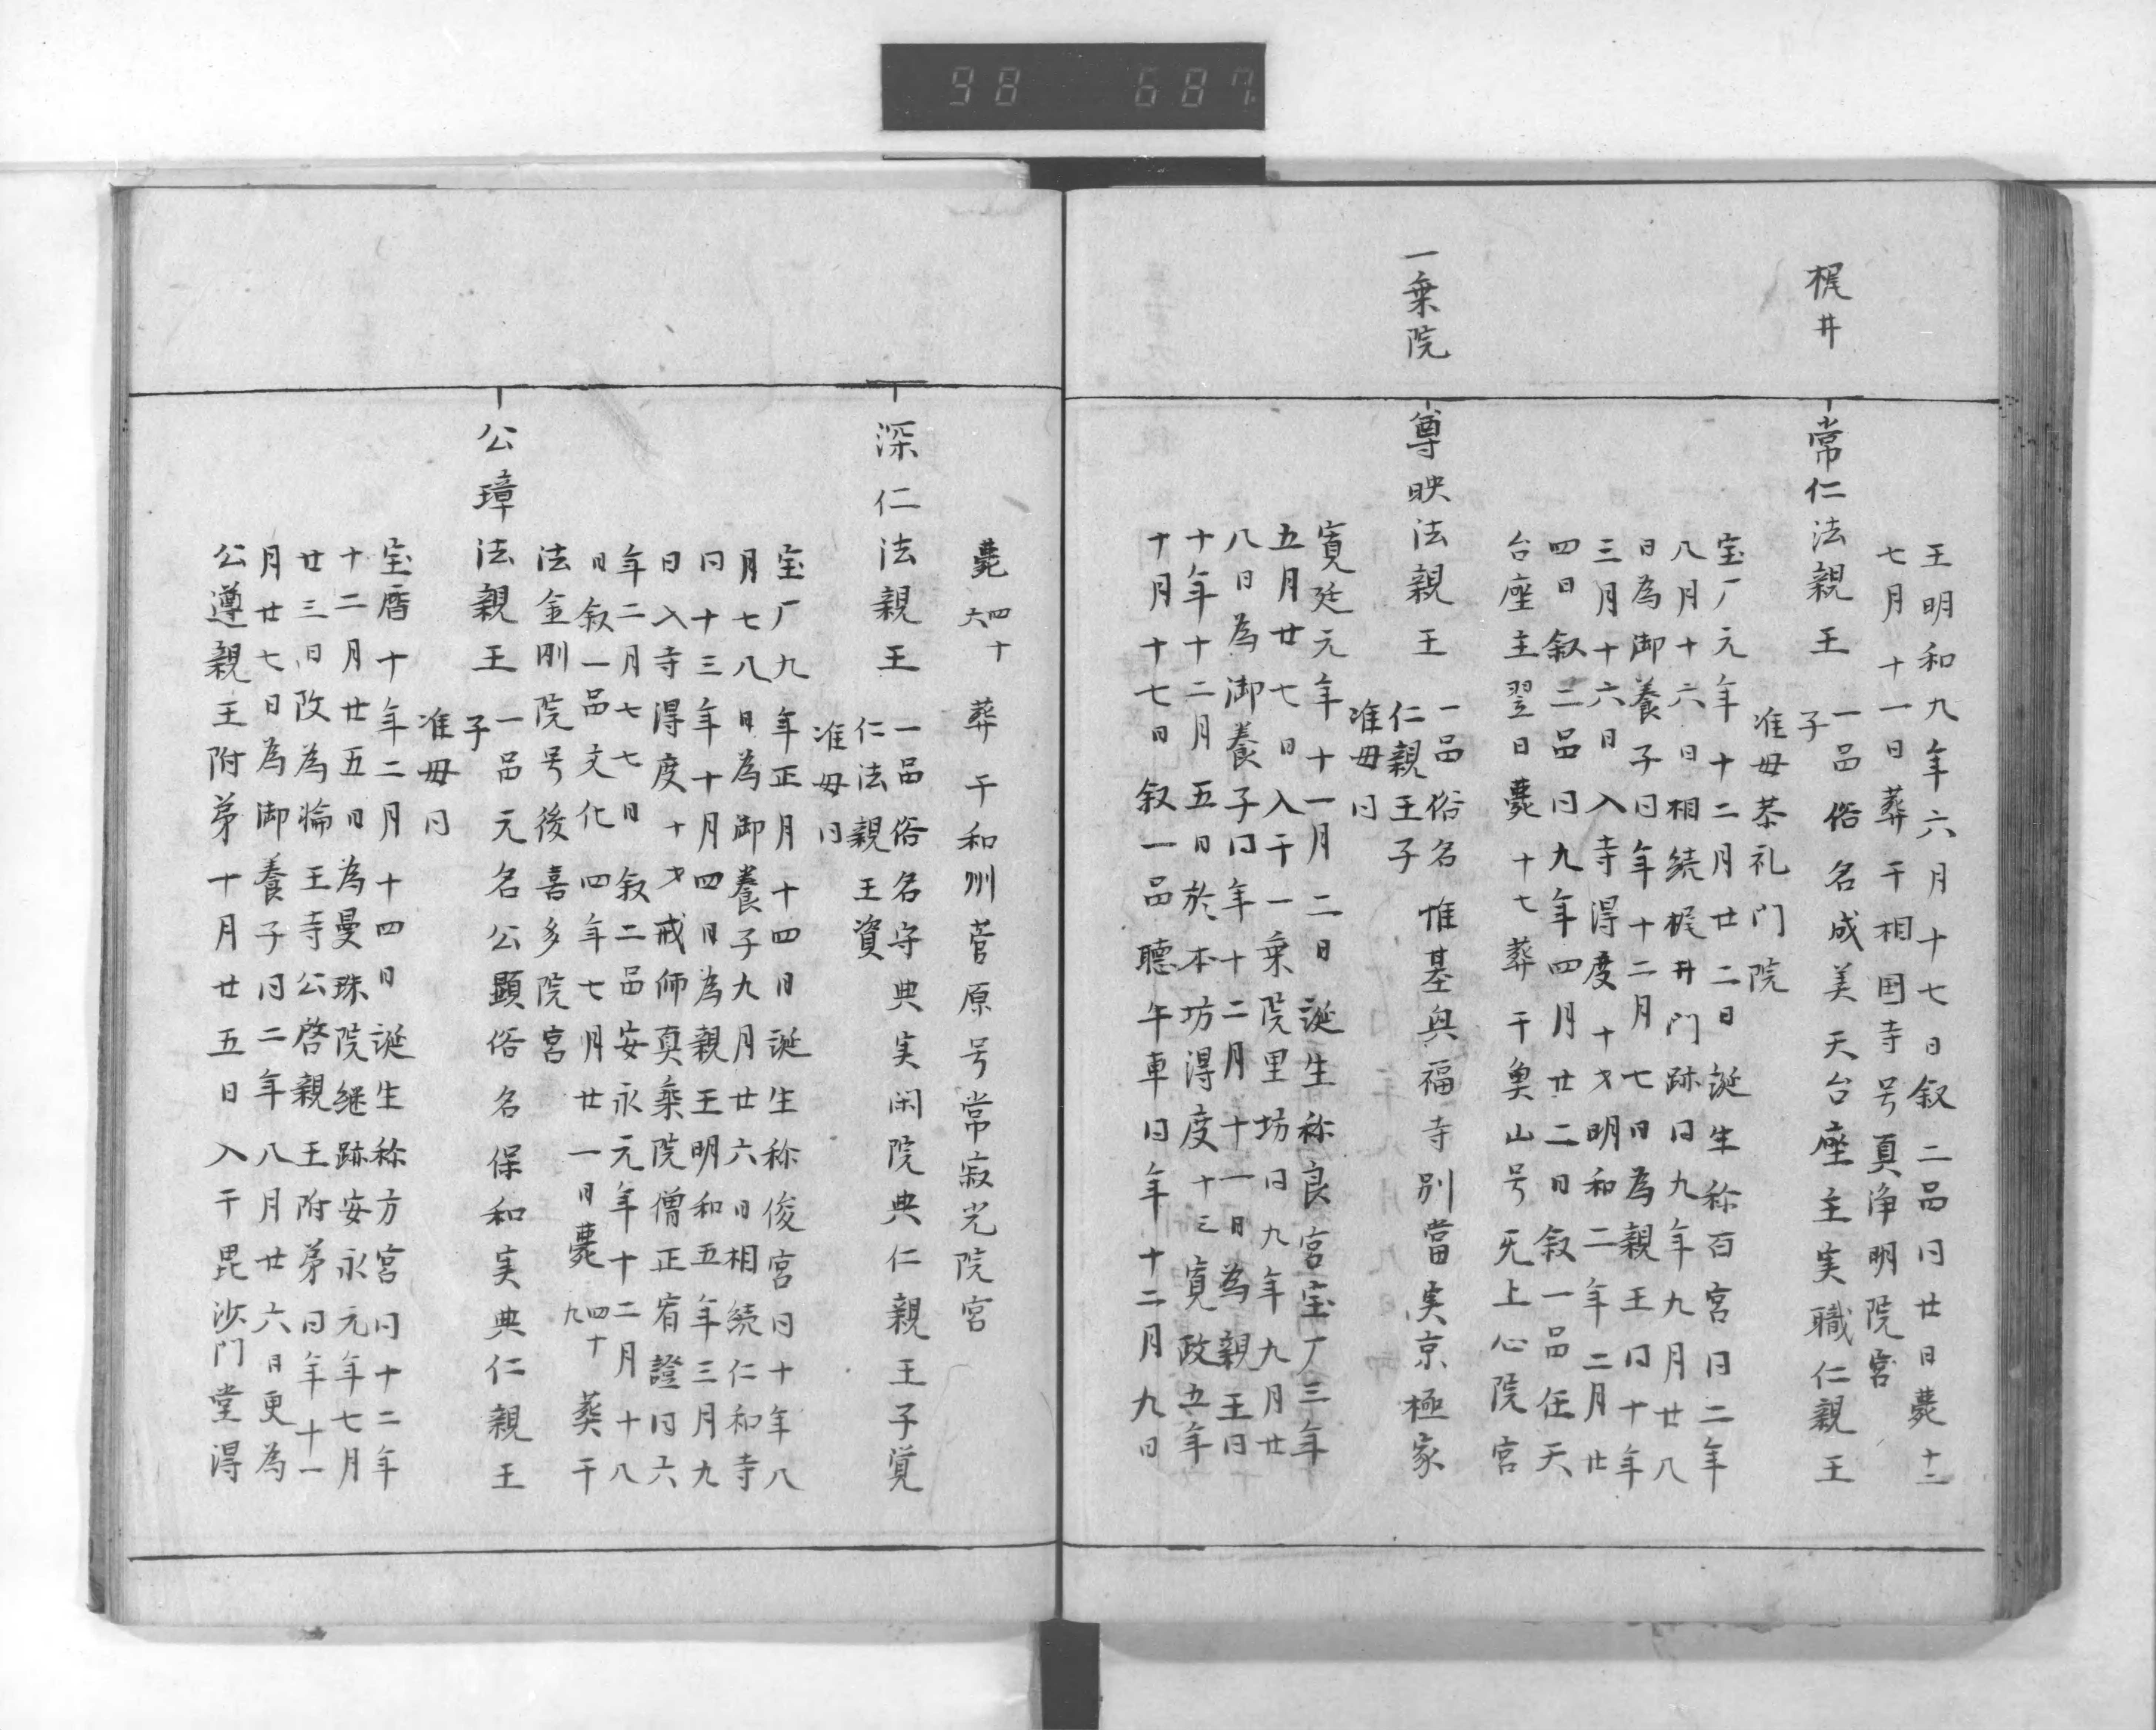 98 687
王明和九年六月十七日叙二品同廿日薨十二
七月十一日葬于相国寺号真浄明院宮
梶井
常仁法親王
一品俗名成美天台座主実職仁親王
子
准母恭礼门院
宝厂元年十二月廿二日誕生称百宮同二年
八月十六日相続梶井门跡同九年九月廿八
日為御養子同年十二月七日為親王同十年
三月十六日入寺得度十才明和二年二月廿
四日叙二品同九年四月廿二日叙一品任天
台座主翌日薨十七葬于奥山号无上心院宮
一乗院
尊映法親王
一品俗名惟基興福寺別當実京極家
仁親王子
准母同
寛延元年十一月二日誕生称良宮宝厂三年
五月廿七日入于一乗院里坊同九年九月廿
八日為御養子同年十二月十一日為親王同
十年十二月五日於本坊得度十三寛政五年
十月十七日叙一品聴午車同年十二月九日
薨四十六葬于和州菅原号常寂光院宮
深仁法親王
一品俗名守典実闲院典仁親王子覚
仁法親王資
准母同
宝厂九年正月十四日誕生称俊宮同十年八
月七八日為御養子九月廿六日相続仁和寺
同十三年十月四日為親王明和五年三月九
日入寺得度十才戒师真乗院僧正宥證同六
年二月七七日叙二品安永元年十二月十八
日叙一品文化四年七月廿一日薨四十九葬于
法金刚院号後喜多院宮
公璋法親王
一品元名公顕俗名保和実典仁親王
子
准母同
宝暦十年二月十四日誕生称方宮同十二年
十二月廿五日為曼殊院継跡安永元年七月
廿三日改為輪王寺公啓親王附弟同年十一
月廿七日為御養子同二年八月廿六日更為
公遵親王附弟十月廿五日入于毘沙门堂得